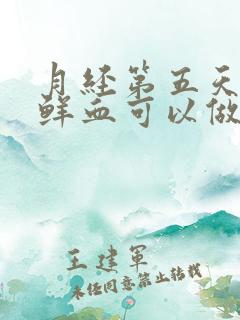 月经第五天
鲜血可以做
王建军
未经同意禁止转载